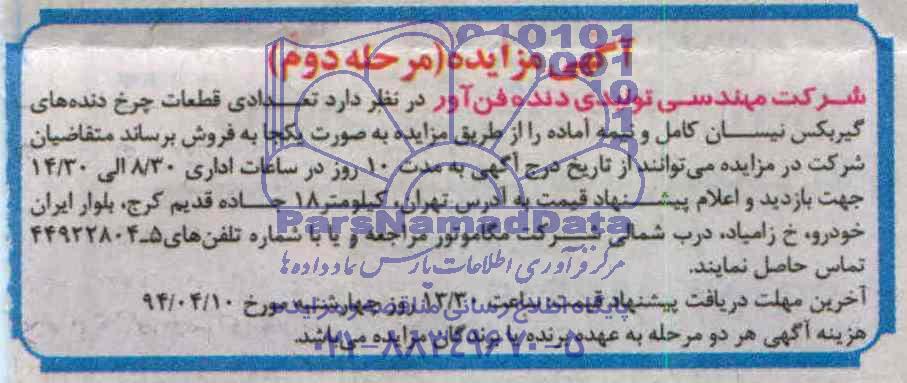 آگهی مزایده (مرحله دوم)
شرکت مهندسی تولیدی دنده فن آور در نظر دارد تعدادی قطعات چرخ دنده‌های
گیربکس نیسان کامل و نیمه آماده را از طریق مزایده به صورت یکجا به فروش برساند متقاضیان
شرکت در مزایده می‌توانند از تاریخ درج آگهی به مدت ۱۰ روز در ساعات اداری ۸/۳۰ الی ۱۴/۳۰
جهت بازدید و اعلام پیشنهاد قیمت به آدرس تهران، کیلومتر ۱۸ جاده قدیم کرج، بلوار ایران
خودرو، خ زامیاد، درب شمالی شرکت مگاموتور مراجعه و یا با شماره تلفن‌های ۵ـ۴۴۹۲۲۸۰۴
تماس حاصل نمایند.
آخرین مهلت دریافت پیشنهاد قیمت: ساعت ۱۳/۳۰ روز چهارشنبه مورخ ۹۴/۰۴/۱۰
هزینه آگهی هر دو مرحله به عهده برنده یا برندگان مزایده می‌باشد.
ParsNamadData
مرکز فرآوری اطلاعات پارس نماد داده ها
پایگاه اطلاع رسانی مناقصه و مزایده
۰۲۱-۸۸۳۴۹۶۷۰-۵